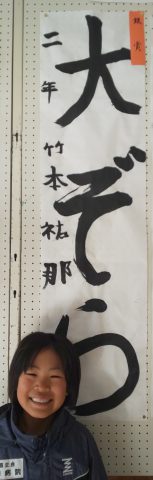 銀賞
大ぞら
二年 竹本祐那